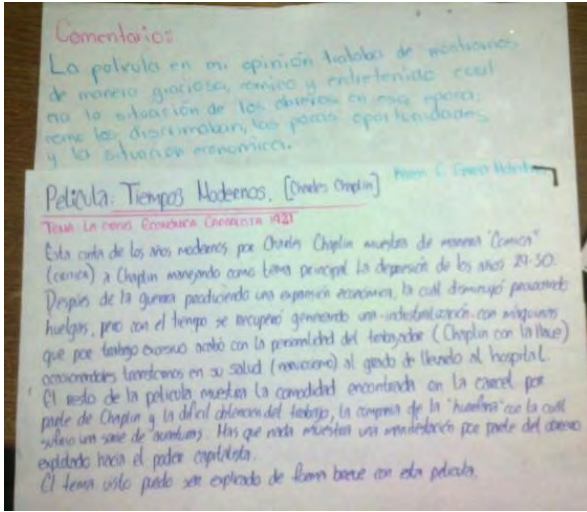 Comentario:
La pelicula en mi opinión trataba de mostrarnos
de manera graciosa, comico y entretenido cual
era la situación de los obreros en esa epoca;
como los discriminaban, las pocas oportunidades
y la situación economica.
Pelicula: Tiempos Modernos. [Charles Chaplin]
Tema: La crisis Económica Capitalista 1929
Esta cinta de los años modernos por Charles Chaplin muestra de manera "Comica"
(comica) a Chaplin manejando como tema principal La depresión de los años 29-30.
Después de la guerra produciendo una expansión económica, la cual disminuyó provocando
huelgas, pero con el tiempo se recuperó generando una industrialización con máquinas
que por trabajo excesivo acabó con la personalidad del trabajador (Chaplin con la llave)
transtornos en su salud (nerviosismo) al grado de llevarlo al hospital.
El resto de la pelicula muestra la comodidad encontrada en la carcel por
parte de Chaplin y la dificil obtencion del trabajo, la compañia de la "huerfana" con la cual
sufrio un serie de aventuras. Mas que nada muestra una manifestación por parte del obrero
explotado hacia el poder capitalista.
El tema visto puede ser explicado de forma breve con esta pelicula.